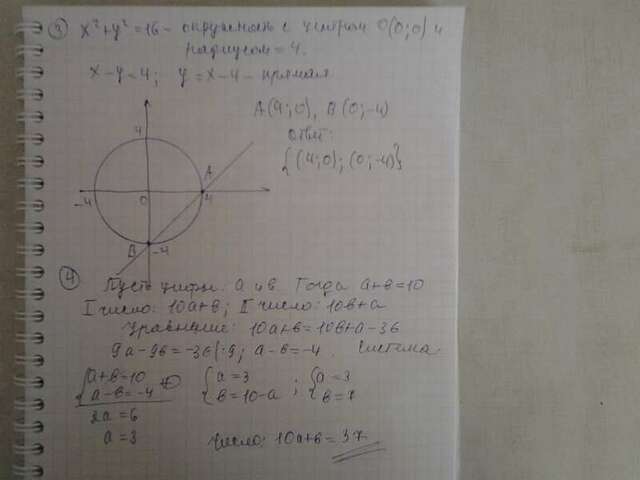 ③ x²+y²=16 - окружность с центром O(0;0) и
радиусом = 4.
x-y=4; y=x-4 - прямая
A(4;0), B(0;-4)
Ответ:
{(4;0);(0;-4)}
4
A
-4 0 4
B -4
④ Пусть цифры: a и b. Тогда a+b=10
I число: 10a+b; II число: 10b+a
Уравнение: 10a+b=10b+a-36
9a-9b=-36|:9; a-b=-4. Система:
{a+b=10 {a=3 ; {a=3
a-b=-4 ⊕ b=10-a b=7
2a=6
a=3
Число: 10a+b=37